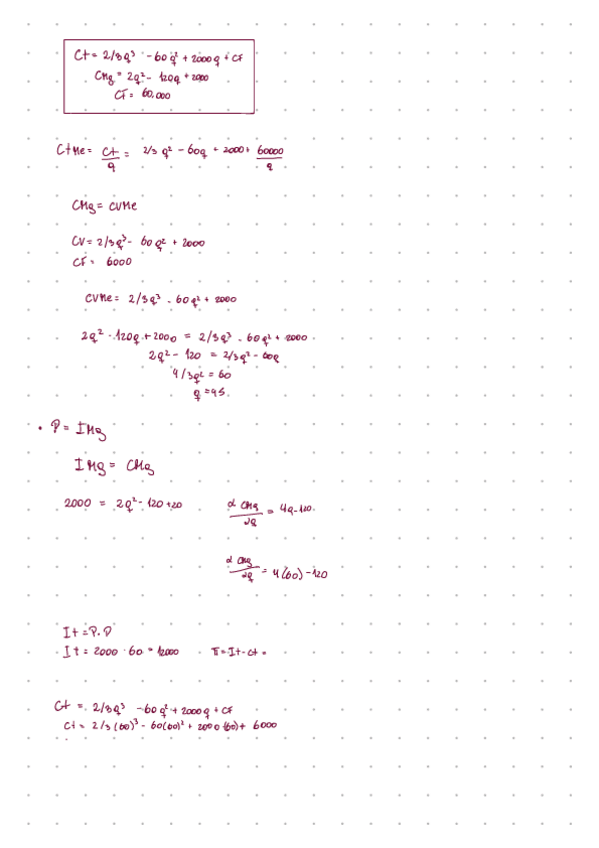 Ct = 2/3q³ - 60q² + 2000q + CF
CMg = 2q² - 120q + 2000
CF = 60.000
CtMe = Ct/q = 2/3 q² - 60q + 2000 + 60000/q
CMg = CVMe
CV = 2/3q³ - 60q² + 2000
CF = 6000
CVMe = 2/3q³ - 60q² + 2000
2q² - 120q + 2000 = 2/3q³ - 60q² + 2000
2q² - 120 = 2/3q² - 60q
4/3q² = 60
q = 45
• P = IMg
IMg = CMg
2000 = 2q² - 120 + 20
∂CMg/∂q = 4q - 120
∂CMg/∂q = 4(60) - 120
It = P.P
It = 2000 · 60 = 12000 π = It - Ct =
Ct = 2/3q³ - 60q² + 2000q + CF
Ct = 2/3(60)³ - 60(60)² + 2000(60) + 6000